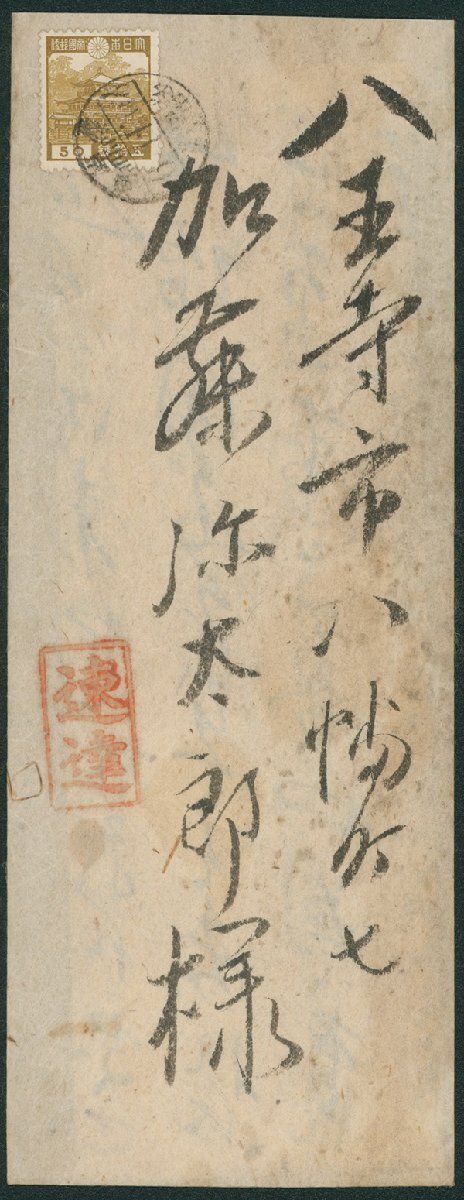 八王寺市八幡町七
加藤弥太郎様
速達
大日本帝國郵便
50